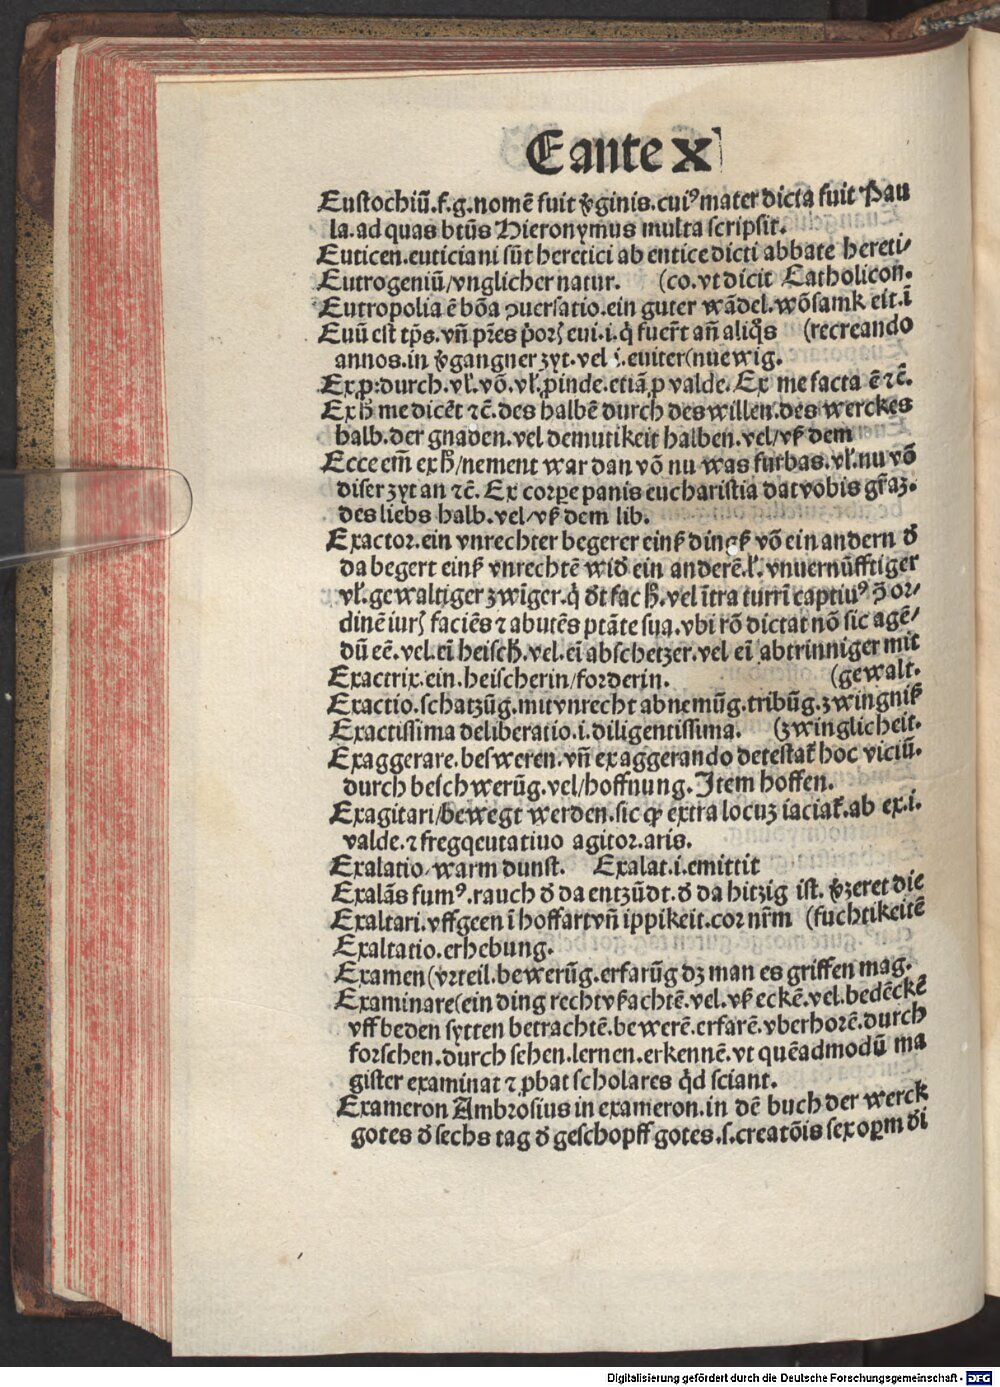 E ante x
Eustochiū.f.g.nomē fuit v̄ginis.cui⁹ mater dicta fuit Pau
la.ad quas btūs Hieronymus multa scripsit.
Euticen.euticiani sūt heretici ab entice dicti abbate hereti⸗
Eutrogeniū/vnglicher natur. (co.vt dicit Catholicon.
Eutropolia ē bōa ↄuersatio.ein guter wādel.wōsamkeit.ī
Euū est tp̄s.vñ pr̄es p̄orꝭ eui.i.q̇ fuer̄t añ aliq̄s (recreando
annos.in v̄gangner zyt.vel .i.euiter(nuewig.
Ex.ꝓ:durch.vl̄.vō.vl̄.ꝓinde.etiā.ꝓ valde.Ex me facta ē ⁊c̄.
Ex h̄ me dicēt ⁊c̄.des halbē durch des willen.des werckes
halb.der gnaden.vel demutikeit halben.vel/vß dem
Ecce em̄ ex h̄/nement war dan vō nu was furbas.vl̄.nu vō
diser zyt an ⁊c̄. Ex corꝑe panis eucharistia dat vobis gr̄aꝫ.
des liebs halb.vel/vß dem lib.
Exactor.ein vnrechter begerer einß dingß vō ein andern d̄
da begert einß vnrechtē wid̄ ein anderē.l̄.vnuernūfftiger
vl̄.gewaltiger zwīger.q̇ d̄t fac h̄.vel ītra turrī captiu⁹ p̄ or⸗
dinē iurꝭ faciēs ⁊ abutēs ptāte sua.vbi rō dictat nō sic agē⸗
dū eē.vel.eī heisch̄.vel.eī abschetzer.vel eī abtrinniger mit
Exactrix.ein.heischerin/forderin. (gewalt.
Exactio.schatzūg.mit vnrecht abnemūg.tribūg.zwingniß
Exactissima deliberatio.i.diligentissima. (zwinglicheit.
Exaggerare.besweren.vñ exaggerando detestat̄ hoc viciū.
durch beschwerūg.vel/hoffnung.Item hoffen.
Exagitari/bewegt werden.sic ꝙ extra locuꝫ iaciat̄.ab ex.i.
valde.⁊ fregqeutatiuo agitor.aris.
Exalatio/warm dunst. Exalat.i.emittit
Exalās fum⁹.rauch d̄ da entzūdt.d̄ da hitzig ist. v̄zeret die
Exaltari.vffgeen ī hoffart vñ ippikeit.cor nr̄m (fuchtikeitē
Exaltatio.erhebung.
Examen(vrteil.bewerūg.erfarūg dz man es griffen mag.
Examinare(ein ding recht vßachtē.vel.vß eckē.vel.bedēckē
vff beden sytten betrachtē.bewerē.erfarē.vberhorē.durch
forschen.durch sehen.lernen.erkennē.vt quēadmodū ma
gister examinat ⁊ ꝓbat scholares q̇d sciant.
Exameron Ambrosius in exameron.in dē buch der werck
gotes d̄ sechs tag d̄ geschopff gotes.s.creatōis sex oꝑm di
Digitalisierung gefördert durch die Deutsche Forschungsgemeinschaft - DFG